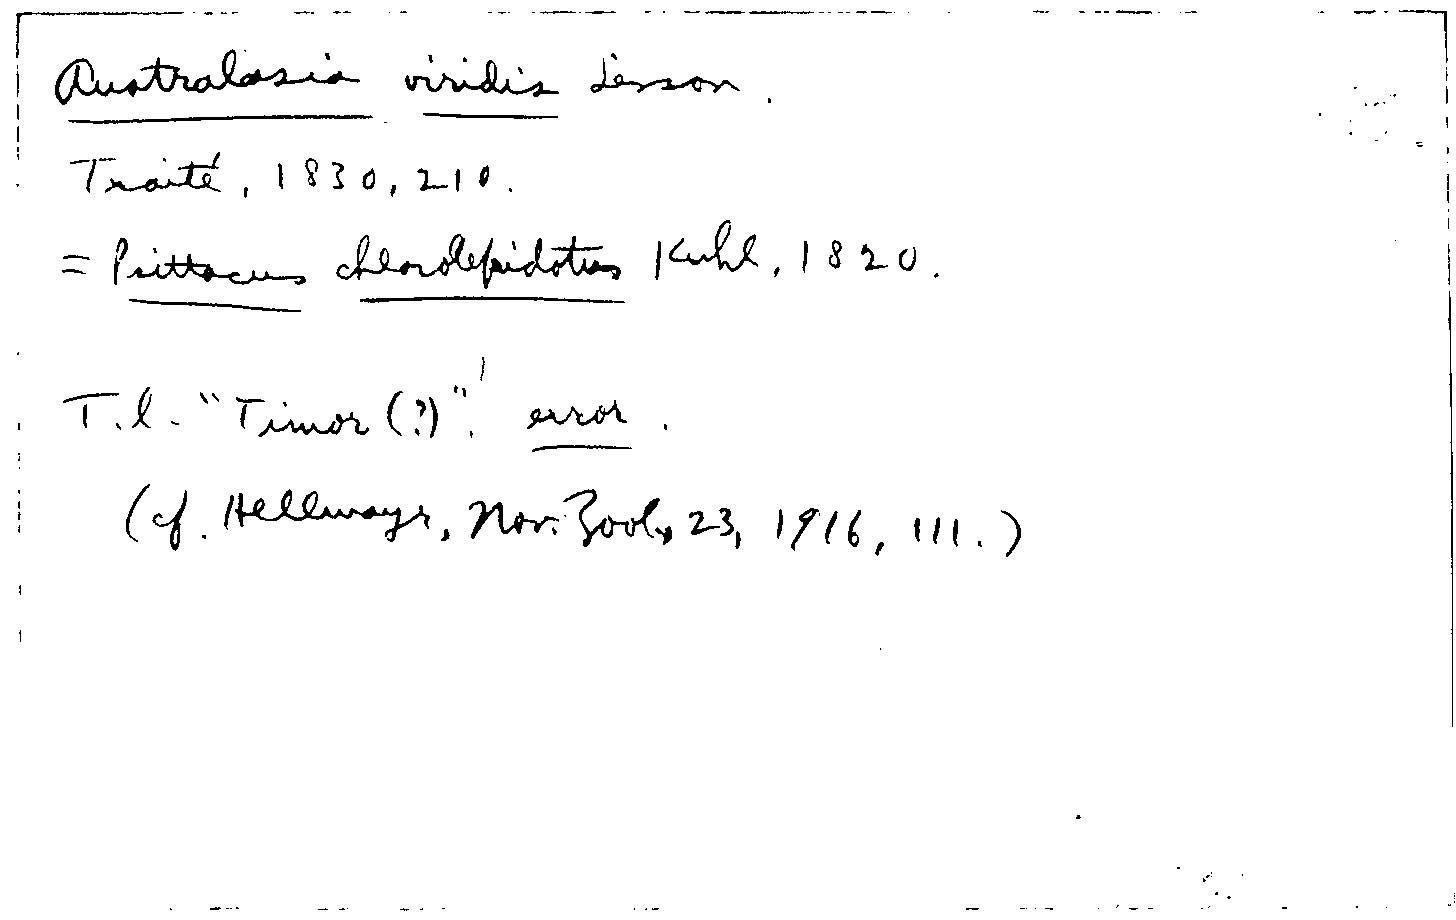 Australasia viridis Lesson.
Traité, 1830, 210.
= Psittacus chlorolepidotus Kuhl, 1820.
T.l. "Timor (?)". error.
(cf. Hellmayr, Nov. Zool., 23, 1916, 111.)